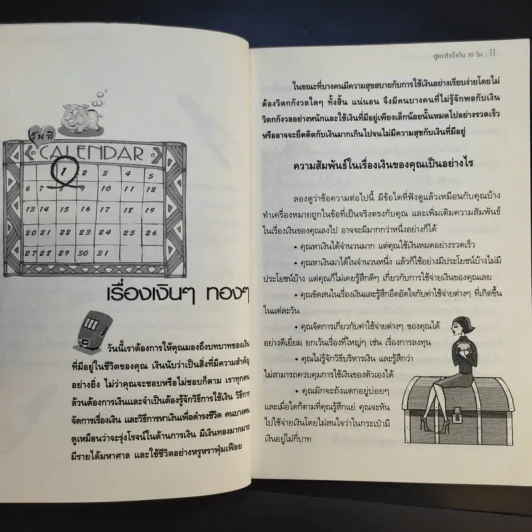 วันที่
CALENDAR
1 2 3 4 5
6 7 8 9 10 11 12
13 14 15 16 17 18 19
20 21 22 23 24 25 26
27 28 29 30 31
เรื่องเงินๆ ทองๆ
วันนี้เราต้องการให้คุณมองถึงบทบาทของเงิน
ที่มีอยู่ในชีวิตของคุณ เงินนับว่าเป็นสิ่งที่มีความสำคัญ
อย่างยิ่ง ไม่ว่าคุณจะชอบหรือไม่ชอบก็ตาม เราทุกคน
ล้วนต้องการเงินและจำเป็นต้องรู้จักวิธีการใช้เงิน วิธีการ
จัดการเรื่องเงิน และวิธีการหาเงินเพื่อดำรงชีวิต คนบางคน
ดูเหมือนว่าจะรุ่งโรจน์ในด้านการเงิน มีเงินทองมากมาย
มีรายได้มหาศาล และใช้ชีวิตอย่างหรูหราฟุ่มเฟือย
สูตรสำเร็จใน 30 วัน : 11
ในขณะที่บางคนมีความสุขสบายกับการใช้เงินอย่างเรียบง่ายโดยไม่
ต้องวิตกกังวลใดๆ ทั้งสิ้น แน่นอน จึงมีบางคนที่ไม่รู้จักพอกับเงิน
วิตกกังวลอย่างหนักและใช้เงินที่มีอยู่เพียงเล็กน้อยนั้นหมดไปอย่างรวดเร็ว
หรืออาจจะยึดติดกับเงินมากเกินไปจนไม่มีความสุขกับเงินที่มีอยู่
ความสัมพันธ์ในเรื่องเงินของคุณเป็นอย่างไร
ลองดูว่าข้อความต่อไปนี้ มีข้อใดที่ฟังดูแล้วเหมือนกับคุณบ้าง
ทำเครื่องหมายถูกในข้อที่เป็นจริงตรงกับคุณ และเพิ่มเติมความสัมพันธ์
ในเรื่องเงินของคุณลงไป อาจจะมีมากกว่าหนึ่งอย่างก็ได้
• คุณหาเงินได้จำนวนมาก แต่คุณใช้เงินหมดอย่างรวดเร็ว
• คุณหาเงินมาได้ในจำนวนหนึ่ง แล้วก็ใช้อย่างมีประโยชน์บ้างไม่มี
ประโยชน์บ้าง แต่คุณก็ไม่เคยรู้สึกดีๆ เกี่ยวกับการใช้จ่ายเงินของคุณเลย
• คุณขัดสนในเรื่องเงินและรู้สึกอึดอัดใจกับค่าใช้จ่ายต่างๆ ที่เกิดขึ้น
ในแต่ละวัน
• คุณจัดการเกี่ยวกับค่าใช้จ่ายต่างๆ ของคุณได้
อย่างดีเยี่ยม ยกเว้นเรื่องที่ใหญ่ๆ เช่น เรื่องการลงทุน
• คุณไม่รู้จักวิธีบริหารเงิน และรู้สึกว่า
ไม่สามารถควบคุมการใช้เงินของตัวเองได้
• คุณมักจะถังแตกอยู่บ่อยๆ
และเมื่อใดก็ตามที่คุณรู้สึกแย่ คุณจะหัน
ไปใช้จ่ายเงินโดยไม่สนใจว่าในกระเป๋ามี
เงินอยู่ไม่กี่บาท